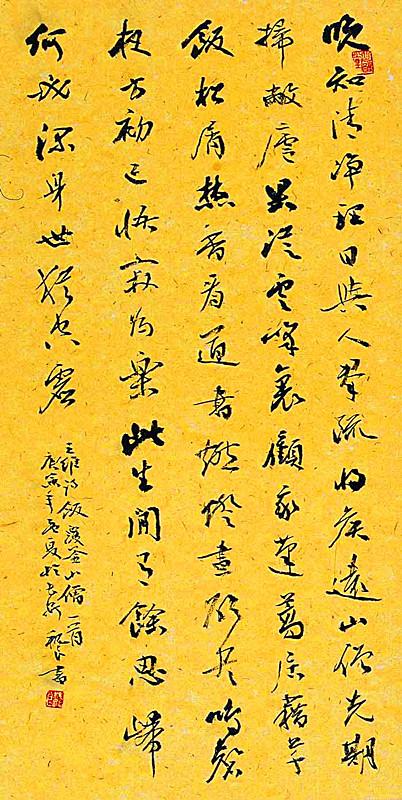 晚知清净理日與人群疏将候遠山僧先期
掃敝廬果從雲峰裏顧我蓬蒿居藉草
飯松屑焚香看道書燃燈晝欲尽鳴磬
夜方初已悟寂為樂此生閒有餘思歸
何必深身世猶空虛
王維詩飯覆釜山僧一首
庚寅年夏於長安書